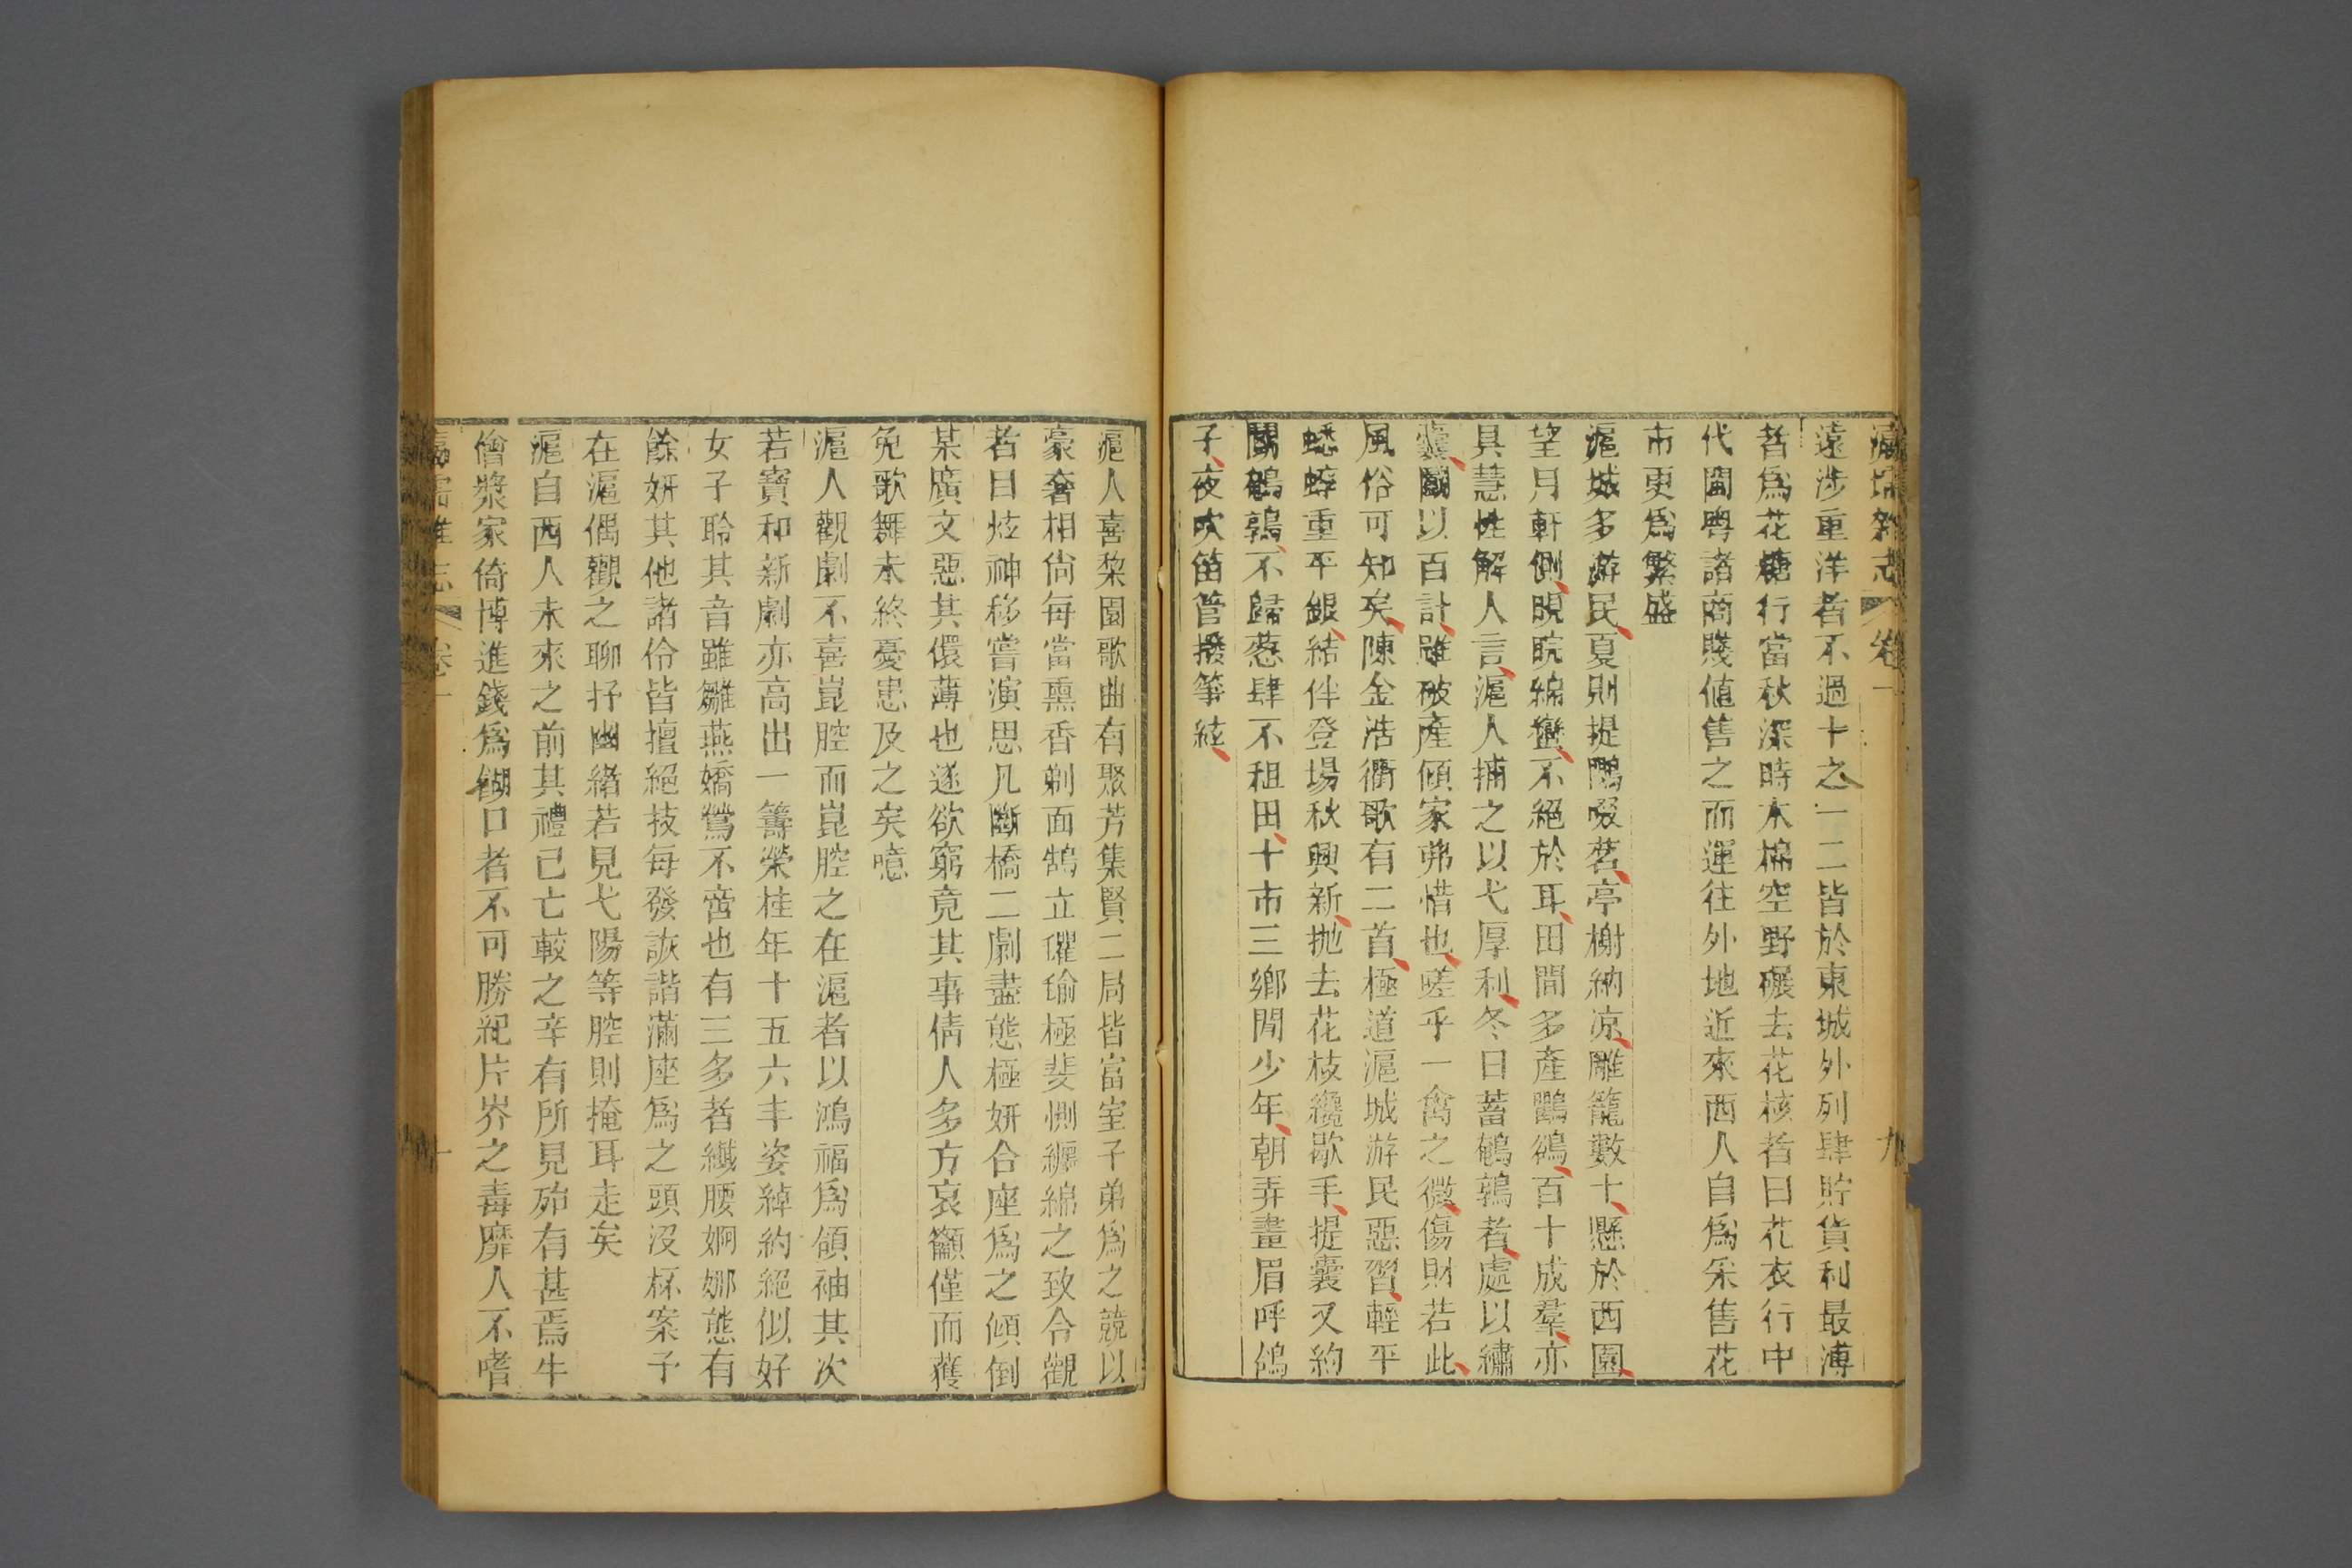 瀛壖雜志 卷一 九
遠涉重洋者不過十之一二皆於東城外列肆貯貨利最溥
者爲花糖行當秋深時木棉空野碾去花核者曰花衣行中
代閩粵諸商賤値售之而運往外地近來西人自爲采售花
市更爲繁盛
滬城多游民夏則提鵰啜茗亭榭納凉雕籠數十懸於西園
望月軒側睍睆綿蠻不絕於耳田間多產鸜鵒百十成羣亦
具慧性解人言滬人捕之以弋厚利冬日蓄鵪鶉者處以繡
囊鬭以百計雖破產傾家弗惜也嗟乎一禽之微傷財若此
風俗可知矣陳金浩衢歌有二首極道滬城游民惡習輕平
蟋蟀重平銀結伴登場秋興新抛去花枝纔歇手提囊又約
鬭鵪鶉不歸慈肆不租田十市三鄉閒少年朝弄畫眉呼鴿
子夜吹笛管撥箏絃
滬人喜棃園歌曲有聚芳集賢二局皆富室子弟爲之競以
豪奢相尙每當熏香剃面鵠立氍毹極斐惻纏綿之致令觀
者目炫神移嘗演思凡斷橋二劇盡態極妍合座爲之傾倒
某廣文惡其儇薄也遂欲窮竟其事倩人多方哀籲僅而獲
免歌舞未終憂患及之矣噫
滬人觀劇不喜崑腔而崑腔之在滬者以鴻福爲領袖其次
若寶和新劇亦高出一籌榮桂年十五六丰姿綽約絕似好
女子聆其音雖雛燕嬌鶯不啻也有三多者纖腰婀娜態有
餘妍其他諸伶皆擅絕技每發詼諧滿座爲之頭沒杯案予
在滬偶觀之聊抒幽緖若見弋陽等腔則掩耳走矣
滬自西人未來之前其禮已亡較之辛有所見殆有甚焉牛
儈漿家倚博進錢爲餬口者不可勝紀片芥之毒靡人不嗜